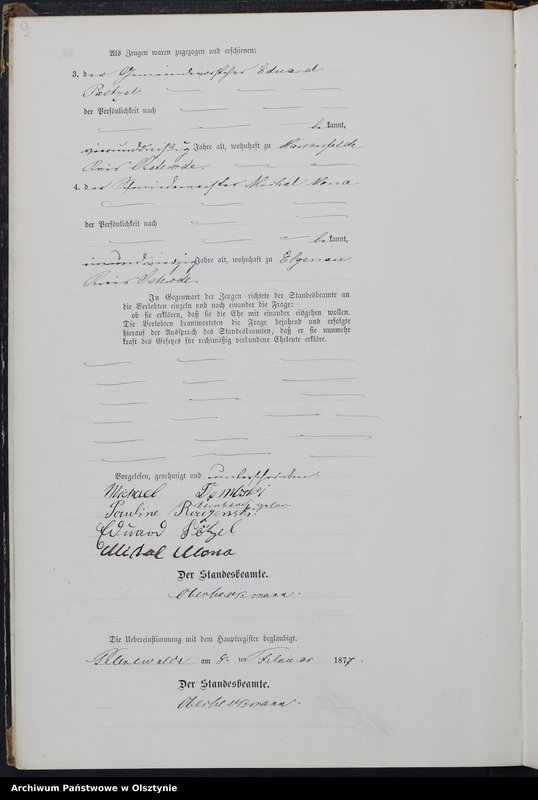 9
Als Zeugen waren zugezogen und erschienen:
3. der Gemeindevorsteher Eduard
der Persönlichkeit nach
be kannt,
vierunddreißig Jahre alt, wohnhaft zu
Kreis Osterode.
4. der Michal Mona
der Persönlichkeit nach
be kannt,
Jahre alt, wohnhaft zu Elgenau
Kreis Osterode.
In Gegenwart der Zeugen richtete der Standesbeamte an
die Verlobten einzeln und nach einander die Frage:
ob sie erklären, daß sie die Ehe mit einander eingehen wollen.
Die Verlobten beantworteten die Frage bejahend und erfolgte
hierauf der Ausspruch des Standesbeamten, daß er sie nunmehr
kraft des Gesetzes für rechtmäßig verbundene Eheleute erkläre.
Vorgelesen, genehmigt und unterschrieben.
Michael
Pauline
Eduard
Michal Mona
Der Standesbeamte.
Oberbeckmann.
Die Uebereinstimmung mit dem Hauptregister beglaubigt.
am 8. ten Februar 1877.
Der Standesbeamte.
Oberbeckmann.
Archiwum Państwowe w Olsztynie